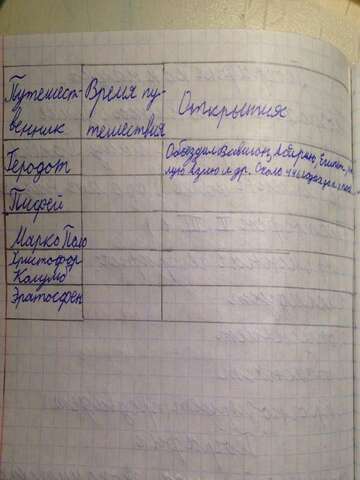 Путешест-
венник
Время пу-
тешествия
Открытия
Геродот
Объездил Вавилон, Ассирию, Египет,
Азию и др. Около
Пифей
Марко Поло
Христофор
Колумб
Эратосфен